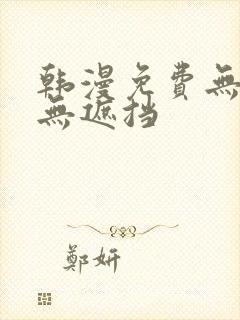 韩漫免費無
無遮挡
鄭妍